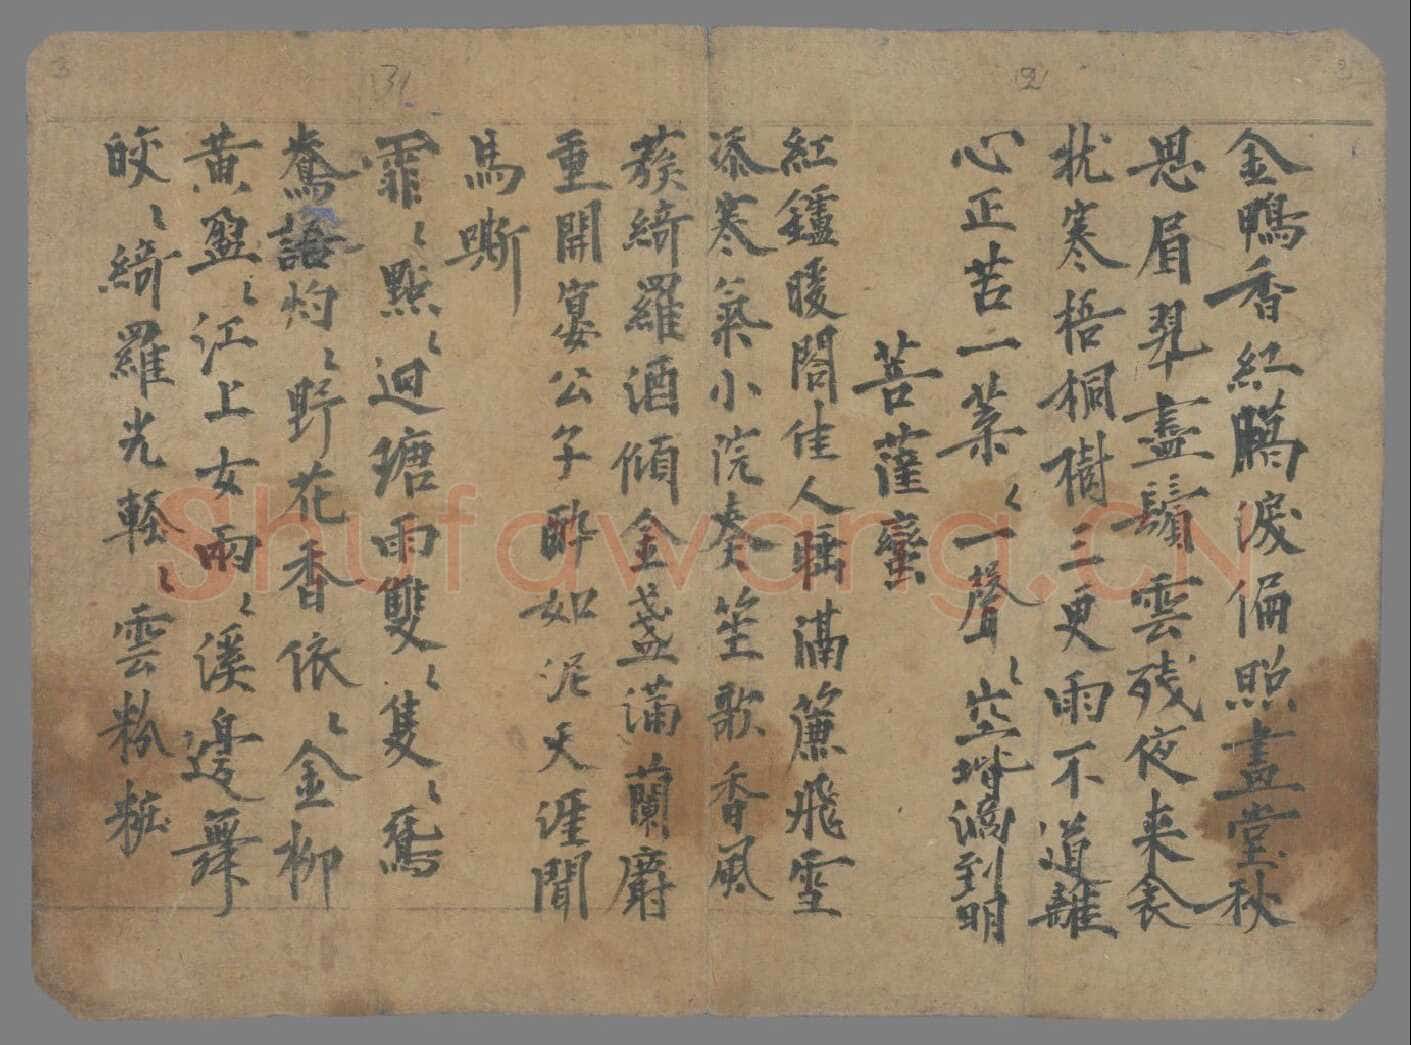 金鴨香紅臈淚偏照畫堂秋
思眉翠盡鬢雲殘夜来衾
枕寒梧桐樹三更雨不道離
心正苦一葉〻一聲〻空堦滴到明
菩薩蠻
紅鑪暖閣佳人睡滿簾飛雪
添寒氣小院奏笙歌香風
蔟綺羅酒傾金盞滿蘭麝
重開宴公子醉如泥天涯聞
馬嘶
霏〻點〻迴塘雨雙〻隻〻鴛
鴦語灼〻野花香依〻金柳
黃盈〻江上女兩〻溪邊舞
皎〻綺羅光輕〻雲粉粧
3
31
2
2
Shufawang.CN